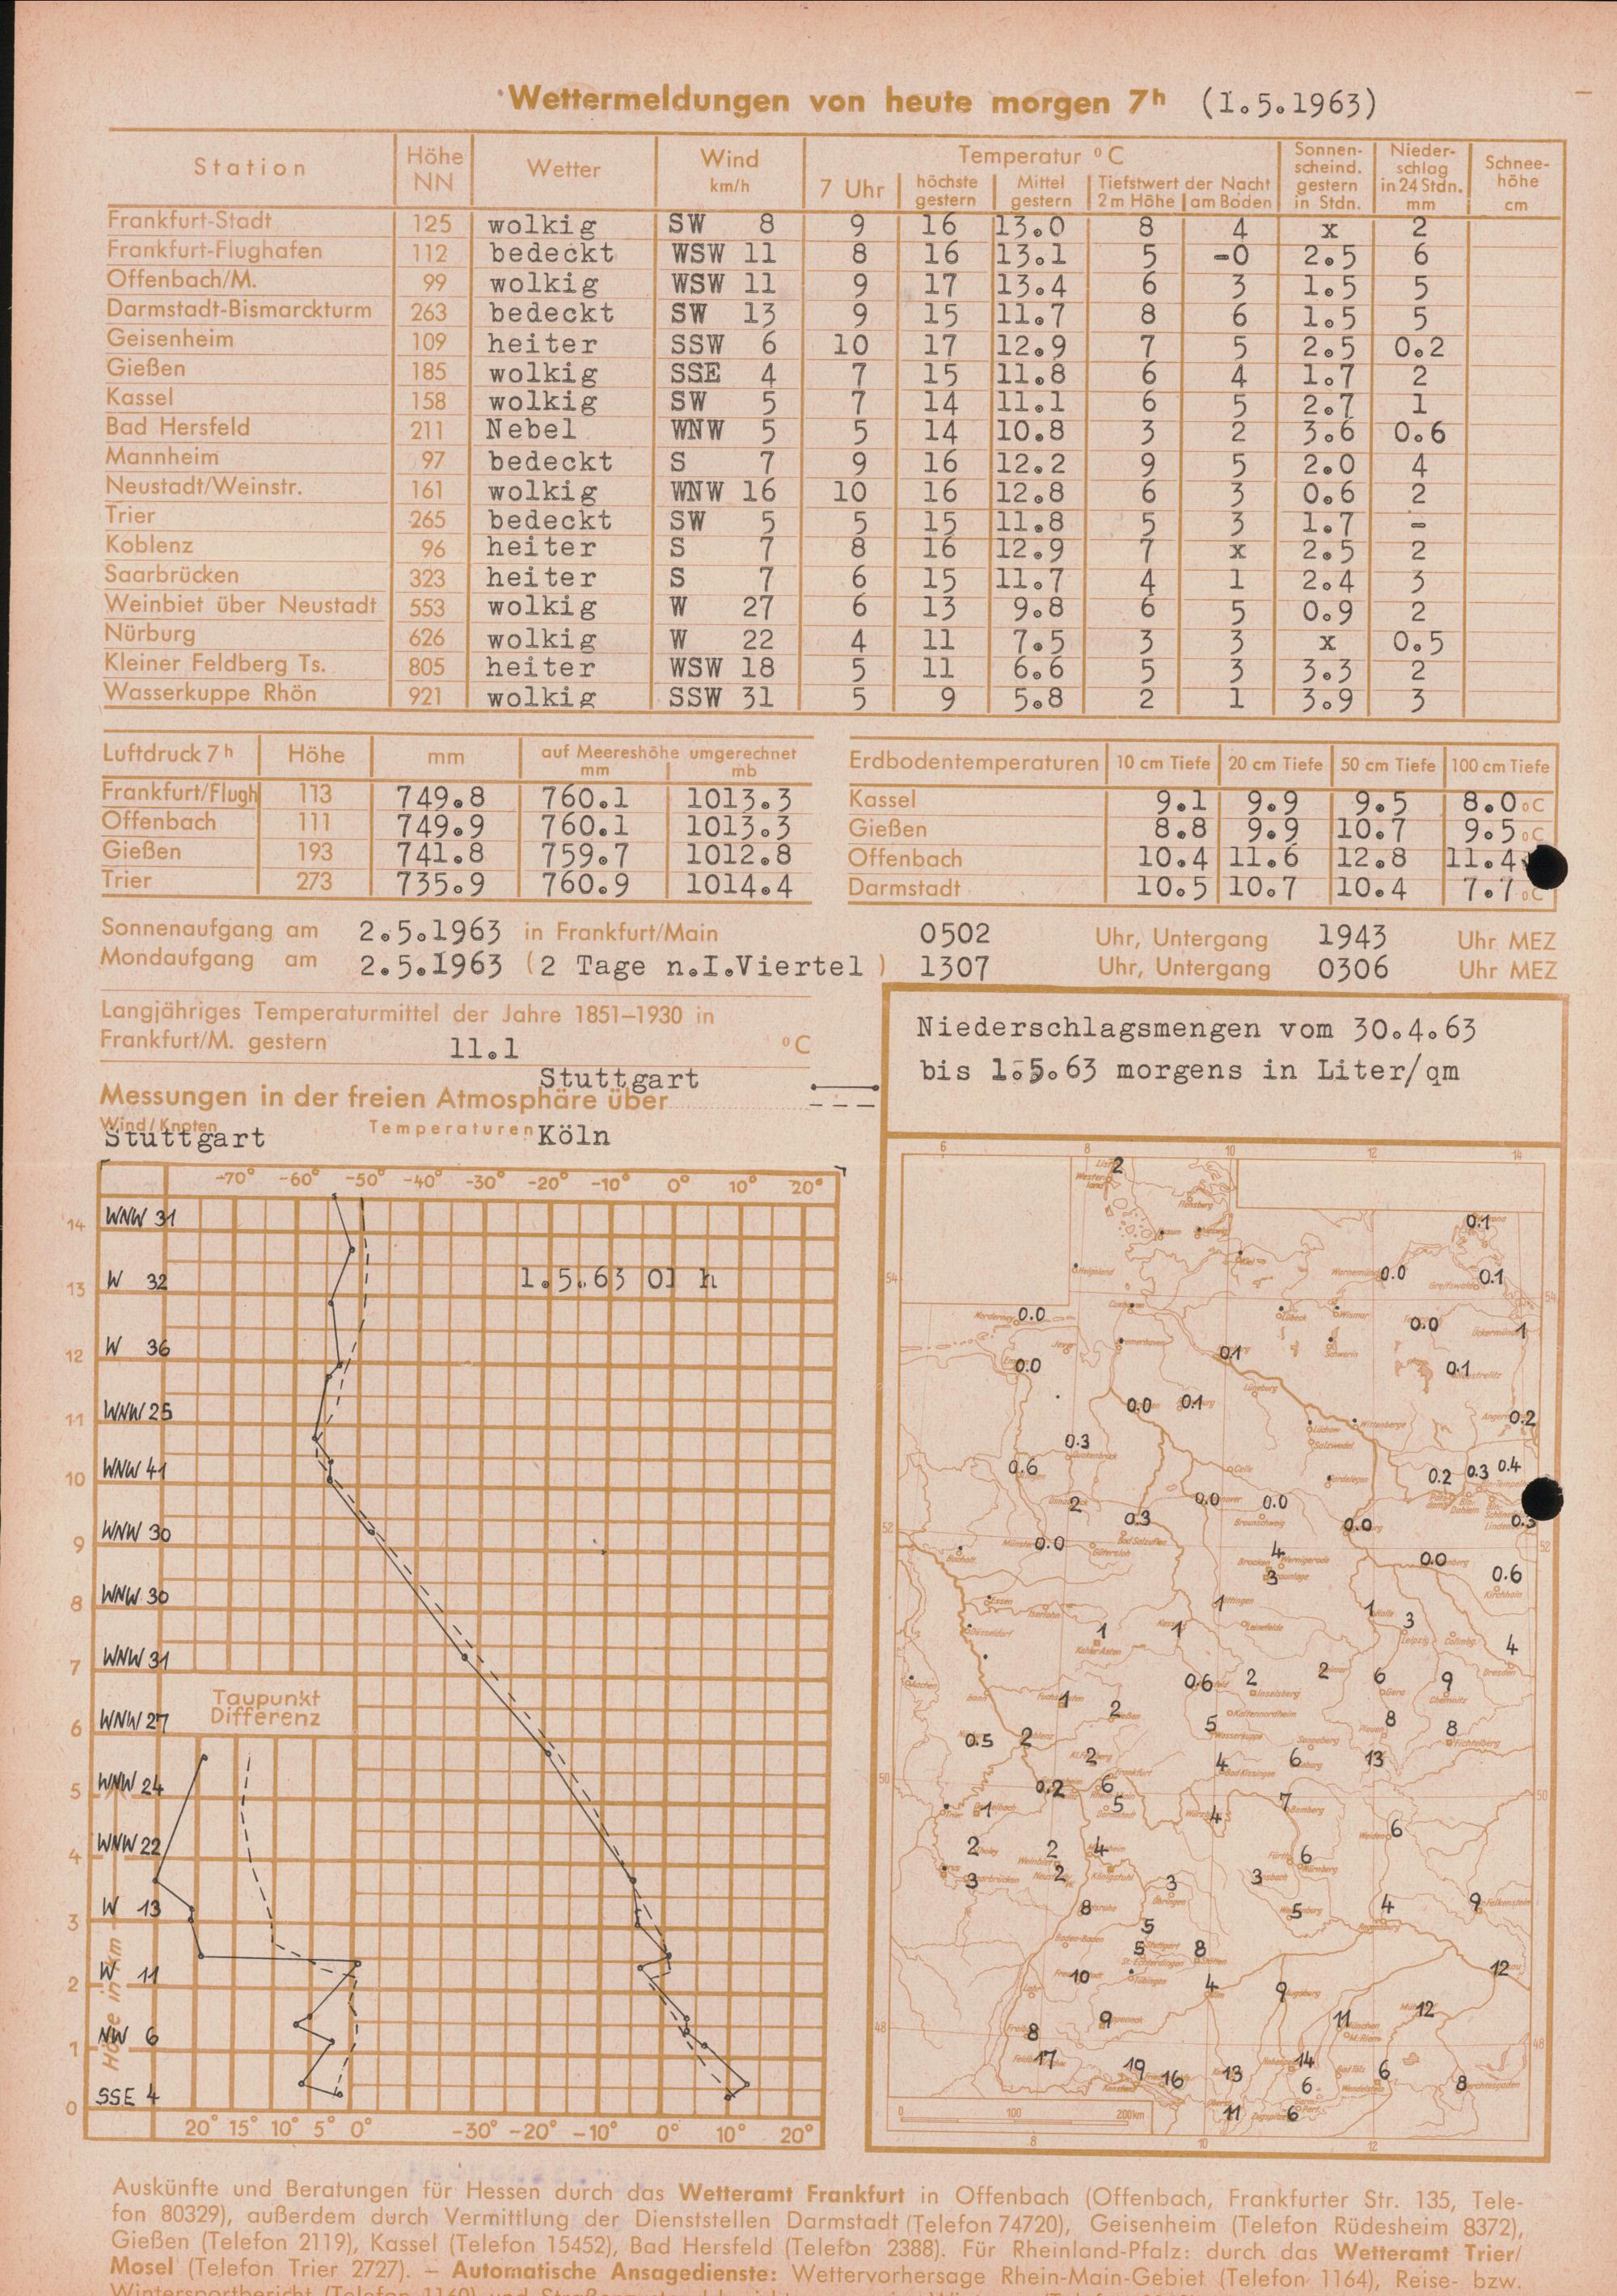 Wettermeldungen von heute morgen 7h (1.5.1963)
Station Höhe NN Wetter Wind km/h Temperatur °C Sonnenscheind. gestern in Stdn. Niederschlag in 24 Stdn. mm Schneehöhe cm
7 Uhr höchste gestern Mittel gestern Tiefstwert der Nacht 2 m Höhe am Boden
Frankfurt-Stadt 125 wolkig SW 8 9 16 13.0 8 4 x 2
Frankfurt-Flughafen 112 bedeckt WSW 11 8 16 13.1 5 -0 2.5 6
Offenbach/M. 99 wolkig WSW 11 9 17 13.4 6 3 1.5 5
Darmstadt-Bismarckturm 263 bedeckt SW 13 9 15 11.7 8 6 1.5 5
Geisenheim 109 heiter SSW 6 10 17 12.9 7 5 2.5 0.2
Gießen 185 wolkig SSE 4 7 15 11.8 6 4 1.7 2
Kassel 158 wolkig SW 5 7 14 11.1 6 5 2.7 1
Bad Hersfeld 211 Nebel WNW 5 5 14 10.8 3 2 3.6 0.6
Mannheim 97 bedeckt S 7 9 16 12.2 9 5 2.0 4
Neustadt/Weinstr. 161 wolkig WNW 16 10 16 12.8 6 3 0.6 2
Trier 265 bedeckt SW 5 5 15 11.8 5 3 1.7 -
Koblenz 96 heiter S 7 8 16 12.9 7 x 2.5 2
Saarbrücken 323 heiter S 7 6 15 11.7 4 1 2.4 3
Weinbiet über Neustadt 553 wolkig W 27 6 13 9.8 6 5 0.9 2
Nürburg 626 wolkig W 22 4 11 7.5 3 3 x 0.5
Kleiner Feldberg Ts. 805 heiter WSW 18 5 11 6.6 5 3 3.3 2
Wasserkuppe Rhön 921 wolkig SSW 31 5 9 5.8 2 1 3.9 3
Luftdruck 7h Höhe mm auf Meereshöhe umgerechnet mm mb
Frankfurt/Flugh 113 749.8 760.1 1013.3
Offenbach 111 749.9 760.1 1013.3
Gießen 193 741.8 759.7 1012.8
Trier 273 735.9 760.9 1014.4
Erdbodentemperaturen 10 cm Tiefe 20 cm Tiefe 50 cm Tiefe 100 cm Tiefe
Kassel 9.1 9.9 9.5 8.0 °C
Gießen 8.8 9.9 10.7 9.5 °C
Offenbach 10.4 11.6 12.8 11.4
Darmstadt 10.5 10.7 10.4 7.7 °C
Sonnenaufgang am 2.5.1963 in Frankfurt/Main 0502 Uhr, Untergang 1943 Uhr MEZ
Mondaufgang am 2.5.1963 (2 Tage n.I.Viertel) 1307 Uhr, Untergang 0306 Uhr MEZ
Langjähriges Temperaturmittel der Jahre 1851–1930 in
Frankfurt/M. gestern 11.1 °C
Stuttgart
Messungen in der freien Atmosphäre über
Wind/Knoten Temperaturen Köln
Stuttgart
-70° -60° -50° -40° -30° -20° -10° 0° 10° 20°
1.5.63 01 h
14 WNW 31
13 W 32
12 W 36
11 WNW 25
10 WNW 41
9 WNW 30
8 WNW 30
7 WNW 31
Taupunkt
Differenz
6 WNW 27
5 WNW 24
4 WNW 22
3 W 13
2 W 11
1 NW 6
0 SSE 4
Höhe in km
20° 15° 10° 5° 0° -30° -20° -10° 0° 10° 20°
Niederschlagsmengen vom 30.4.63
bis 1.5.63 morgens in Liter/qm
6 8 10 12 14
2
0.1
0.0 0.1
54 54
0.0 0.0 1
0.0 0.1 0.1
0.0 0.1 0.2
0.3
0.6 0.2 0.3 0.4
2 0.3 0.0 0.0 0.0 0.3
52 52
0.0 4 0.0
3 0.6
1 1 3
1 1 4
1 2 0.6 2 2 6 9
0.5 2 5 8 8
2 4 6 13
50 50
0.2 6
1 5 4 7
2 2 4 6 6
3 2 3 3
8 5 4 9
5
5 8 12
10 4 9
9 11 12
48 48
8
17 19 16 13 14 6 8
6
11 6
0 100 200km
8 10 12
Auskünfte und Beratungen für Hessen durch das Wetteramt Frankfurt in Offenbach (Offenbach, Frankfurter Str. 135, Tele-
fon 80329), außerdem durch Vermittlung der Dienststellen Darmstadt (Telefon 74720), Geisenheim (Telefon Rüdesheim 8372),
Gießen (Telefon 2119), Kassel (Telefon 15452), Bad Hersfeld (Telefon 2388). Für Rheinland-Pfalz: durch das Wetteramt Trier/
Mosel (Telefon Trier 2727). – Automatische Ansagedienste: Wettervorhersage Rhein-Main-Gebiet (Telefon 1164), Reise- bzw.
Wintersportbericht (Telefon 1160) und